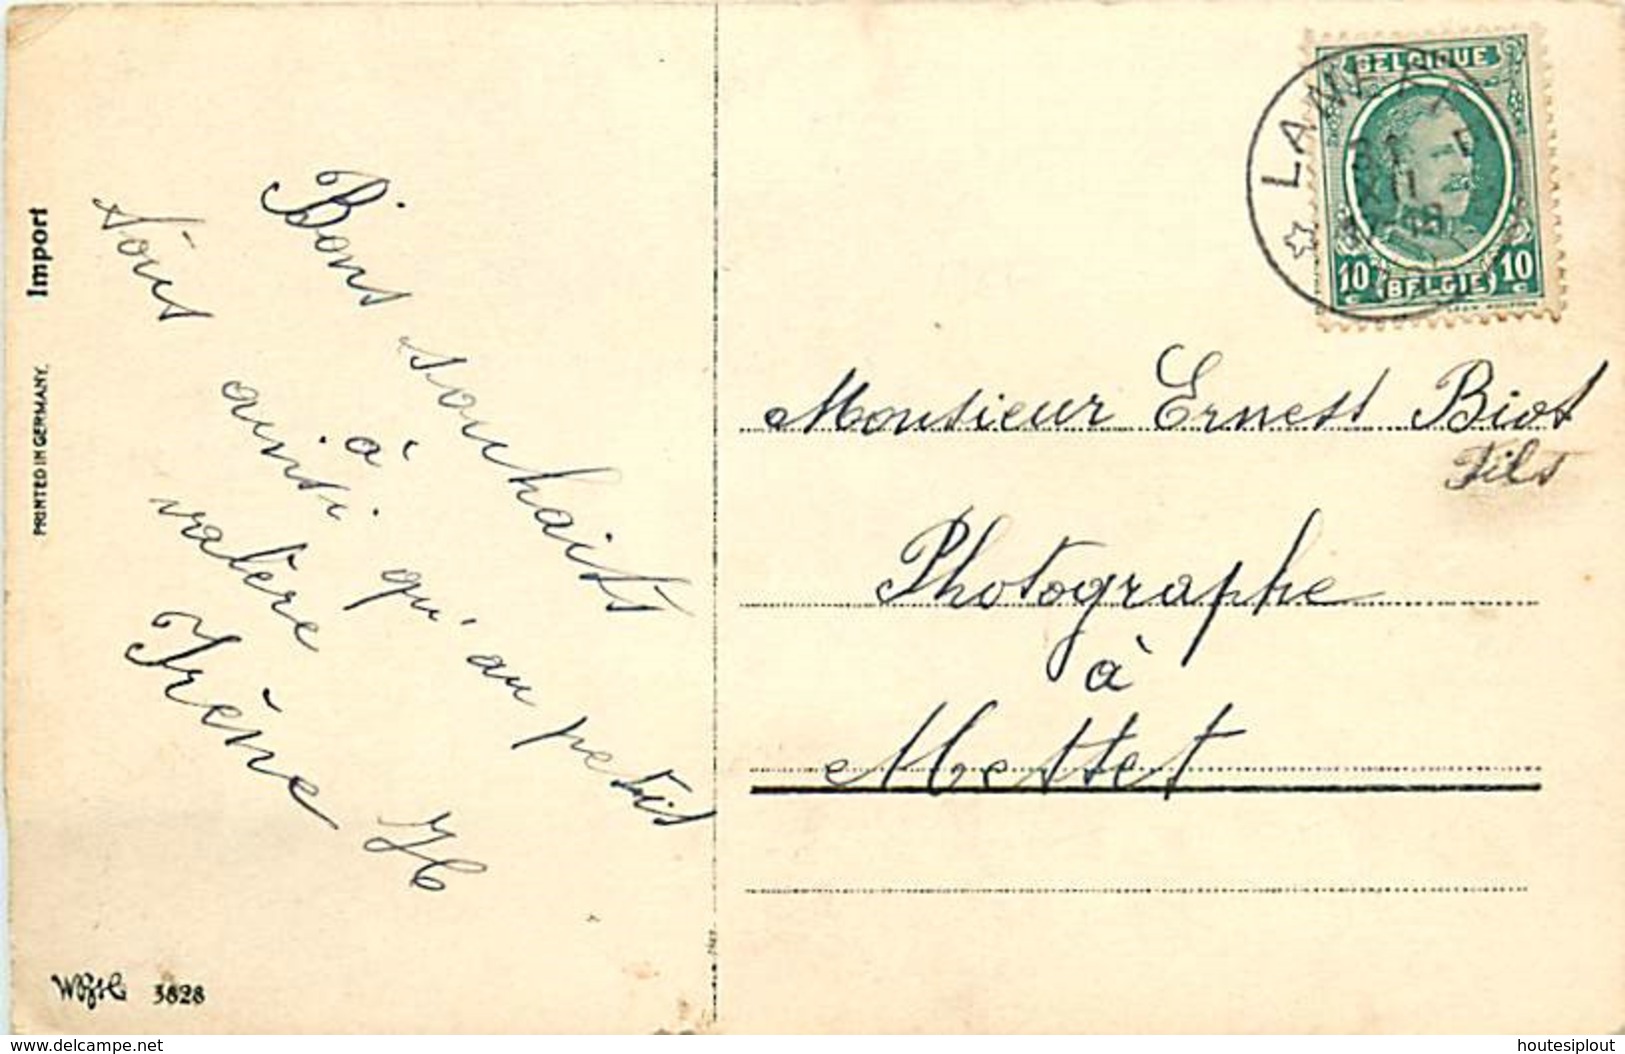 Bons souhaits
à
Tous
ainsi qu'au petit
valère
Irène H
Import
PRINTED IN GERMANY.
3828
BELGIQUE
10 BELGIE 10
Monsieur Ernest Biot
Fils
Photographe
à
Mettet
www.delcampe.net
houtesiplout